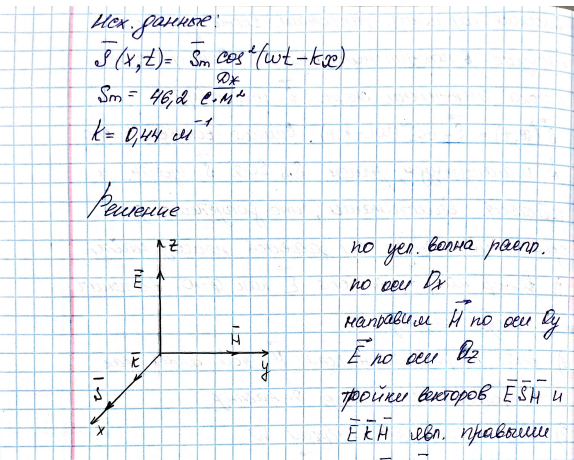 Исх. данные:
S̄(x,t) = S̄m cos²(ωt-kx)
Sm = 46,2 Дж/с·м²
k = 0,44 м⁻¹
Решение
z
E̅
H̅
y
K̅
S̅
x
по усл. волна распр.
по оси Ox
направим H⃗ по оси Oy
E⃗ по оси Oz
тройки векторов E̅S̅H̅ и
E̅K̅H̅ явл. правыми